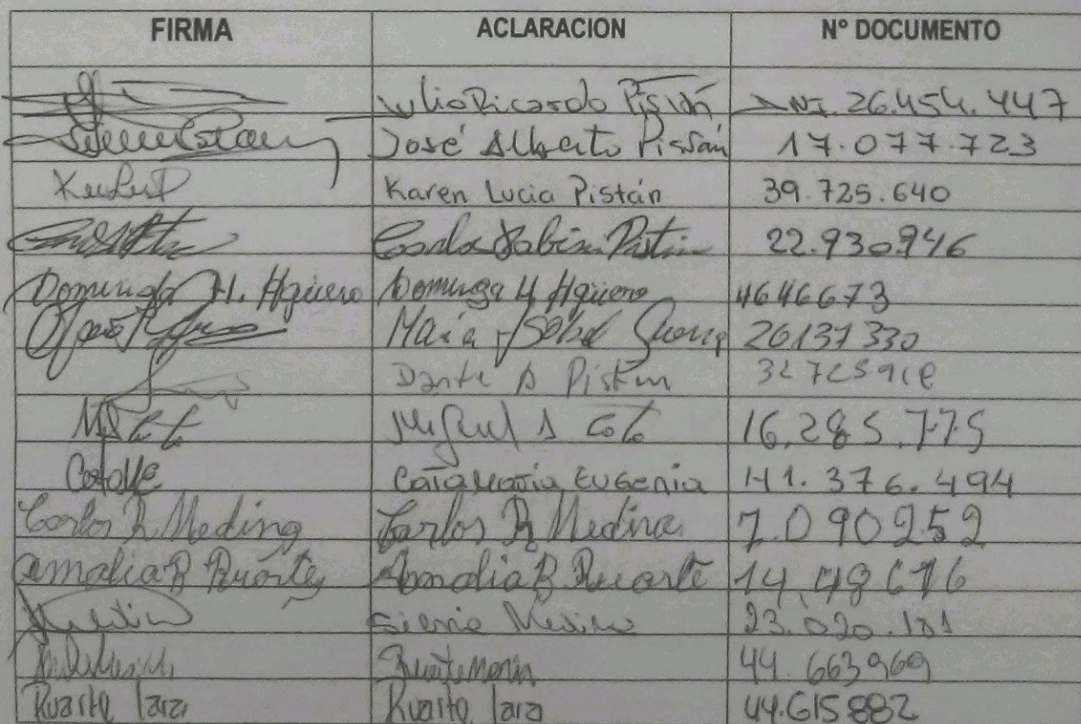 FIRMA ACLARACION Nº DOCUMENTO
Julio Ricardo Pistán DNI. 26.454.447
José Alberto Pistán 17.077.723
Karen Lucia Pistán 39.725.640
Carlos Fabián Pistán 22.930.946
Dominga H. Agüero Dominga H Agüero 4646673
Maria Isabel 26137330
Dante A Pistan
Miguel A Coto 16.285.775
Cata Maria Eugenia 41.376.494
Carlos R. Medina Carlos R Medina 7.090252
Amalia B Ruarte Amalia B Ruarte
Medina 23.020.181
Ruarte Maria 44.663969
Ruarte Iara Ruarte Iara 44.615882